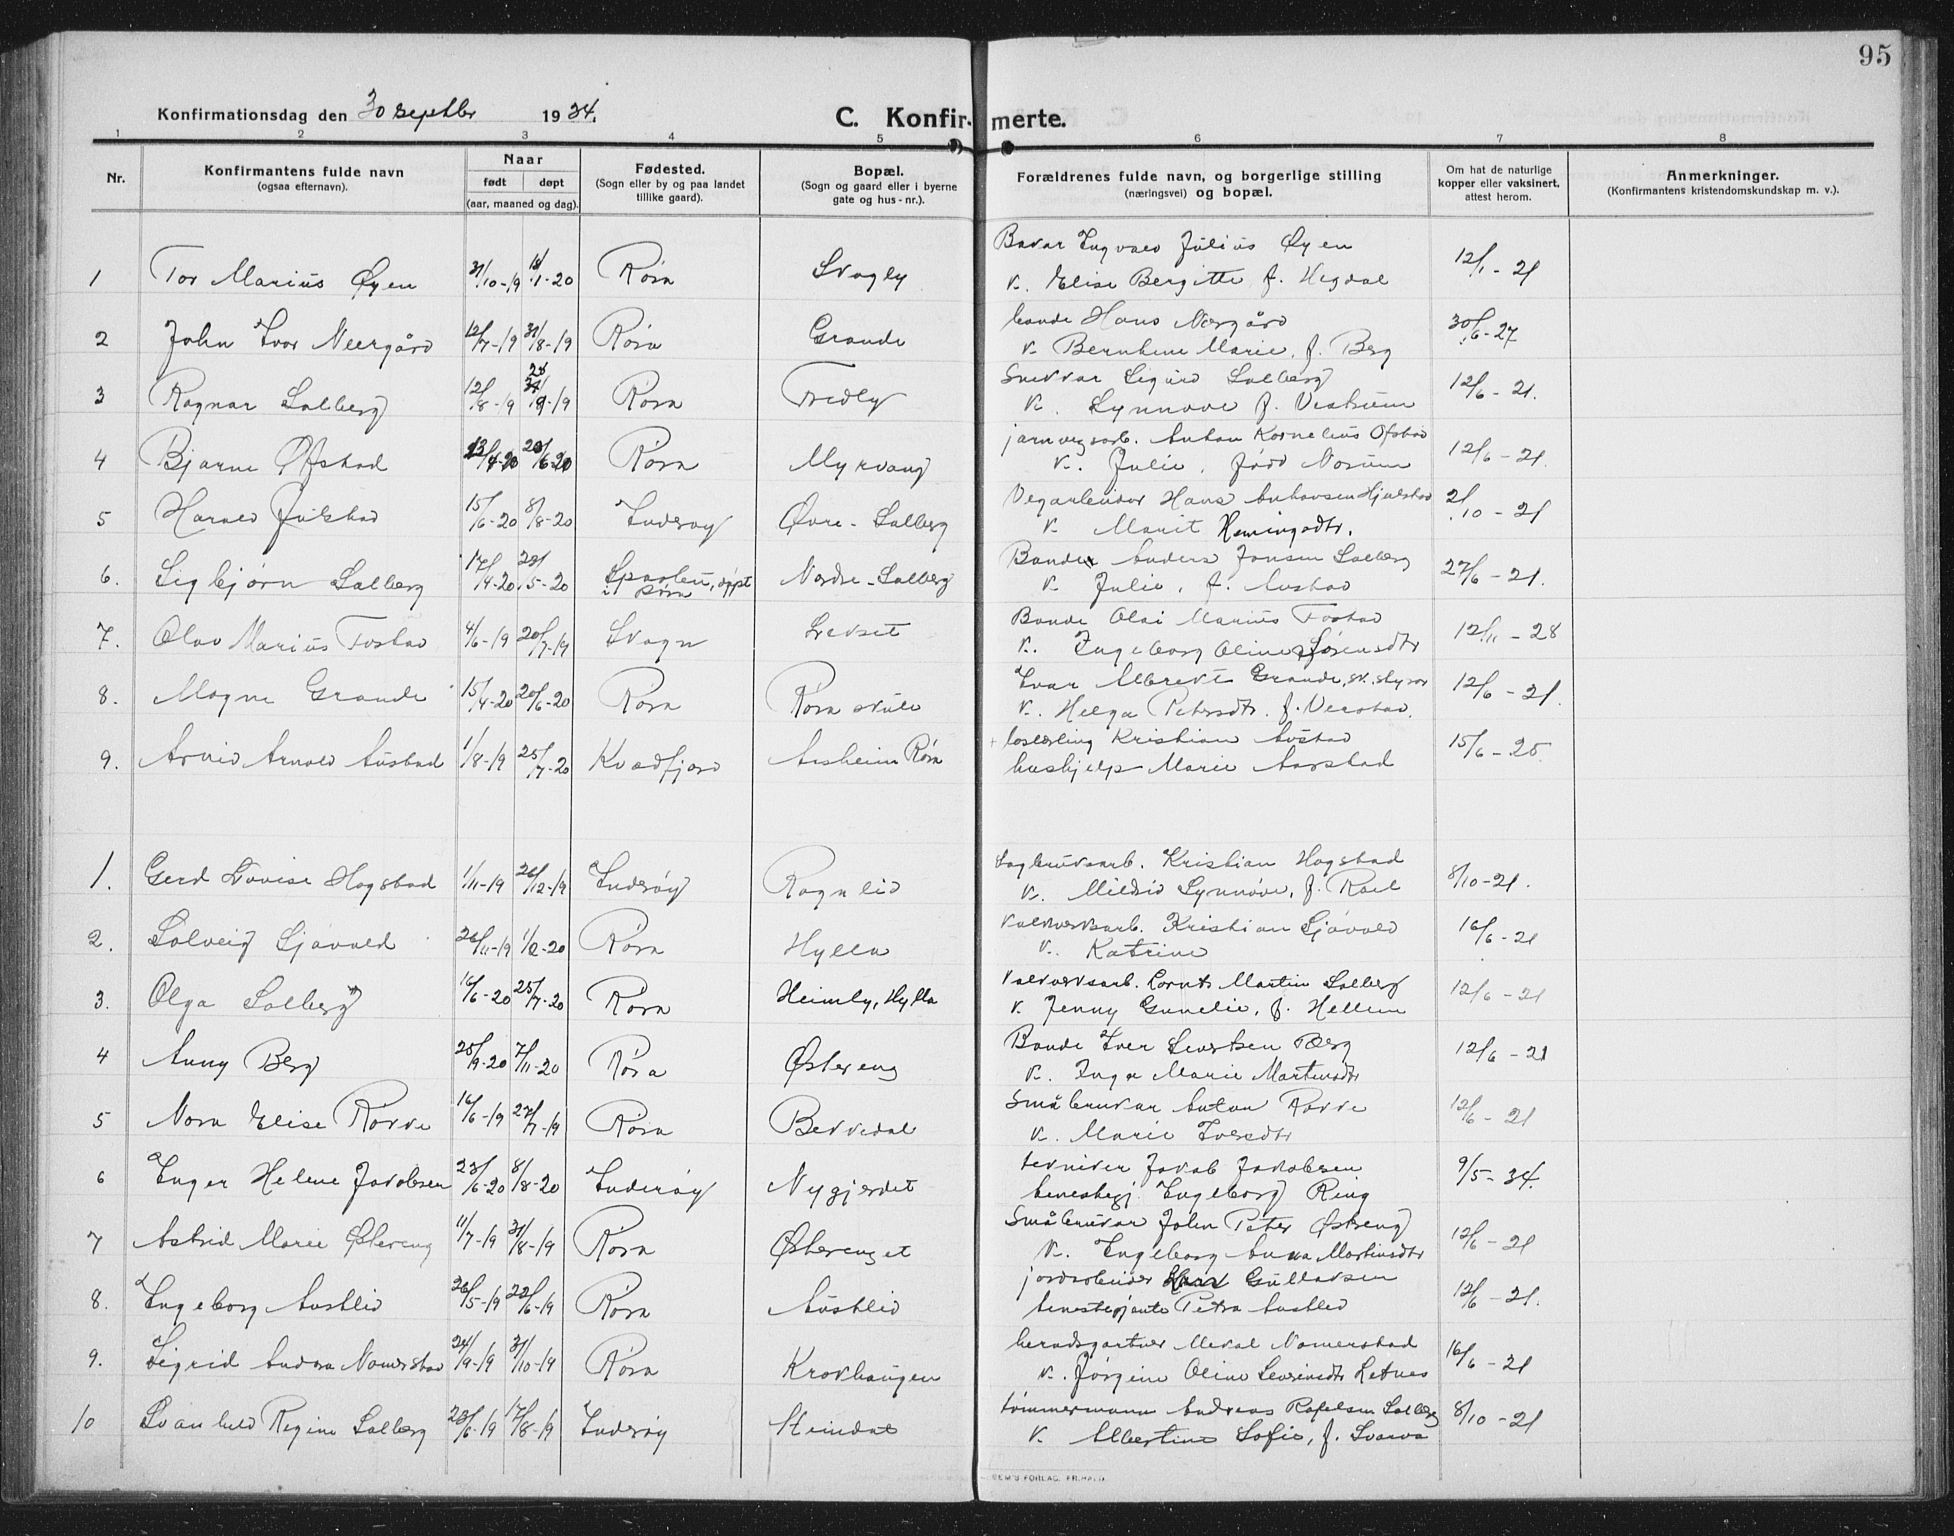 95
Konfirmationsdag den 30 septbr 1934.
C. Konfirmerte.
1 2 3 4 5 6 7 8
Nr.
Konfirmantens fulde navn
(ogsaa efternavn).
Naar
født døpt
(aar, maaned og dag).
Fødested.
(Sogn eller by og paa landet
tillike gaard).
Bopæl.
(Sogn og gaard eller i byerne
gate og hus-nr.).
Forældrenes fulde navn, og borgerlige stilling
(næringsvei) og bopæl.
Om hat de naturlige
kopper eller vaksinert,
attest herom.
Anmerkninger.
(Konfirmantens kristendomskundskap m. v.).
Bakar Ingvald Julius Øyen
1 Tor Marius Øyen 31/10-19 18/1-20 Røra Skogly k. Elise Bergitte f. Hegdal 12/1-21
bonde Hans Nergård
2 John Ivar Neergård 12/7-19 31/8-19 Røra Grande k. Bernhine Marie, f. Berg 30/6-27
Snekkar Sigurd Salberg
3 Ragnar Salberg 12/8-19 Røra Fredly k. Synnøve f. Vestrum 12/6-21.
jarnvegsarb. Anton Kornelius Ofstad
4 Bjarne Øfstad 23/4-20 20/6-20 Røra Myrvang k. Julie, født Norum 12/6-21.
Vegarbeider Hans Antonsen Hjulstad
5 Harald Julstad 15/6-20 8/8-20 Inderøy Øvre-Salberg k. Marit Hemingsdtr. 2/10-21
Bonde Anders Jonsen Salberg
6. Sigbjørn Salberg 17/4-20 Sparbu, døpt i Røra Nordre-Salberg k. Julie, f. Austad 27/6-21.
Bonde Olai Marius Fostad
7. Olav Marius Fostad 4/6-19 20/7-19 Skogn Levset k. Ingeborg Oline Sørensdtr 12/11-28
Ivar Albrekt Grande, sk.styrar
8. Magne Grande 15/4-20 20/6-20 Røra Røra skule k. Helga Petersdtr. f. Verstad. 12/6-21.
+ loserling Kristian Austad
9. Arvid Arnold Austad 1/8-19 25/7-20 Kvedfjord Aasheim Røra hushjelp Marie Aarstad 15/6-25.
Sagbruksarb. Kristian Hogstad
1. Gerd Lovise Hogstad 1/11-19 26/12-19 Inderøy Ragnlid k. Mildrid Synnøve, f. Roel 8/10-21.
Kalkverksarb. Kristian Sjåvold
2. Solveig Sjåvold 26/11-19 1/2-20 Røra Hylla k. Katrine 16/6-21
Kalkverksarb. Lornts Martin Salberg
3. Olga Salberg 16/6-20 25/7-20 Røra Heimly, Hylla k. Jenny Gunelie, f. Hellem 12/6-21
Bonde Iver Sivertsen Berg
4 Anny Berg 25/9-20 7/11-20 Røra Østereng k. Inga Marie Martinsdtr 12/6-21
Småbrukar Anton Rokke
5 Nora Elise Rokke 16/6-19 27/7-19 Røra Bekkedal k. Marie Iversdtr 12/6-21
tekniker Jakob Jakobsen
6 Inger Helene Jakobsen 23/6-20 8/8-20 Inderøy Nygjerdet tenestegj. Ingeborg Ring 9/5-34.
Småbrukar John Peter Østreng
7 Astrid Marie Østereng 11/7-19 31/8-19 Røra Østerenget k. Ingeborg Anna Martinsdtr 12/6-21
jordarbeider Gullaksen
8. Ingeborg Austlid 26/5-19 22/6-19 Røra Austlid tenestejente Petra Austlid 12/6-21.
heradsgartner Mikal Nomerstad
9. Sigrid Andrea Nomerstad 24/9-19 31/10-19 Røra Krokhaugen k. Jørgine Oline Severinsdtr Letnes 16/6-21
tømmermann Andreas Rafelsen Salberg
10 Svanhild Regine Salberg 23/6-19 17/8-19 Inderøy Heindal k. Albertine Sofie, f. Svarva 8/10-21
SEM'S FORLAG, FR.HALD.